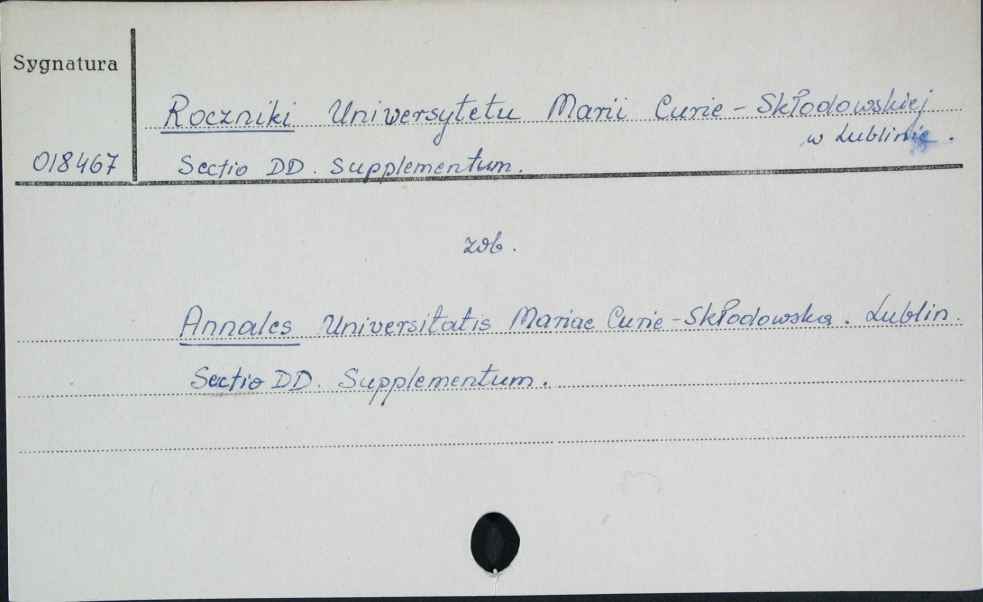 Sygnatura
Roczniki Uniwersytetu Marii Curie-Skłodowskiej
w Lublinie.
018467 Sectio DD. Supplementum.
zob.
Annales Universitatis Mariae Curie-Skłodowska. Lublin.
Sectio DD. Supplementum.